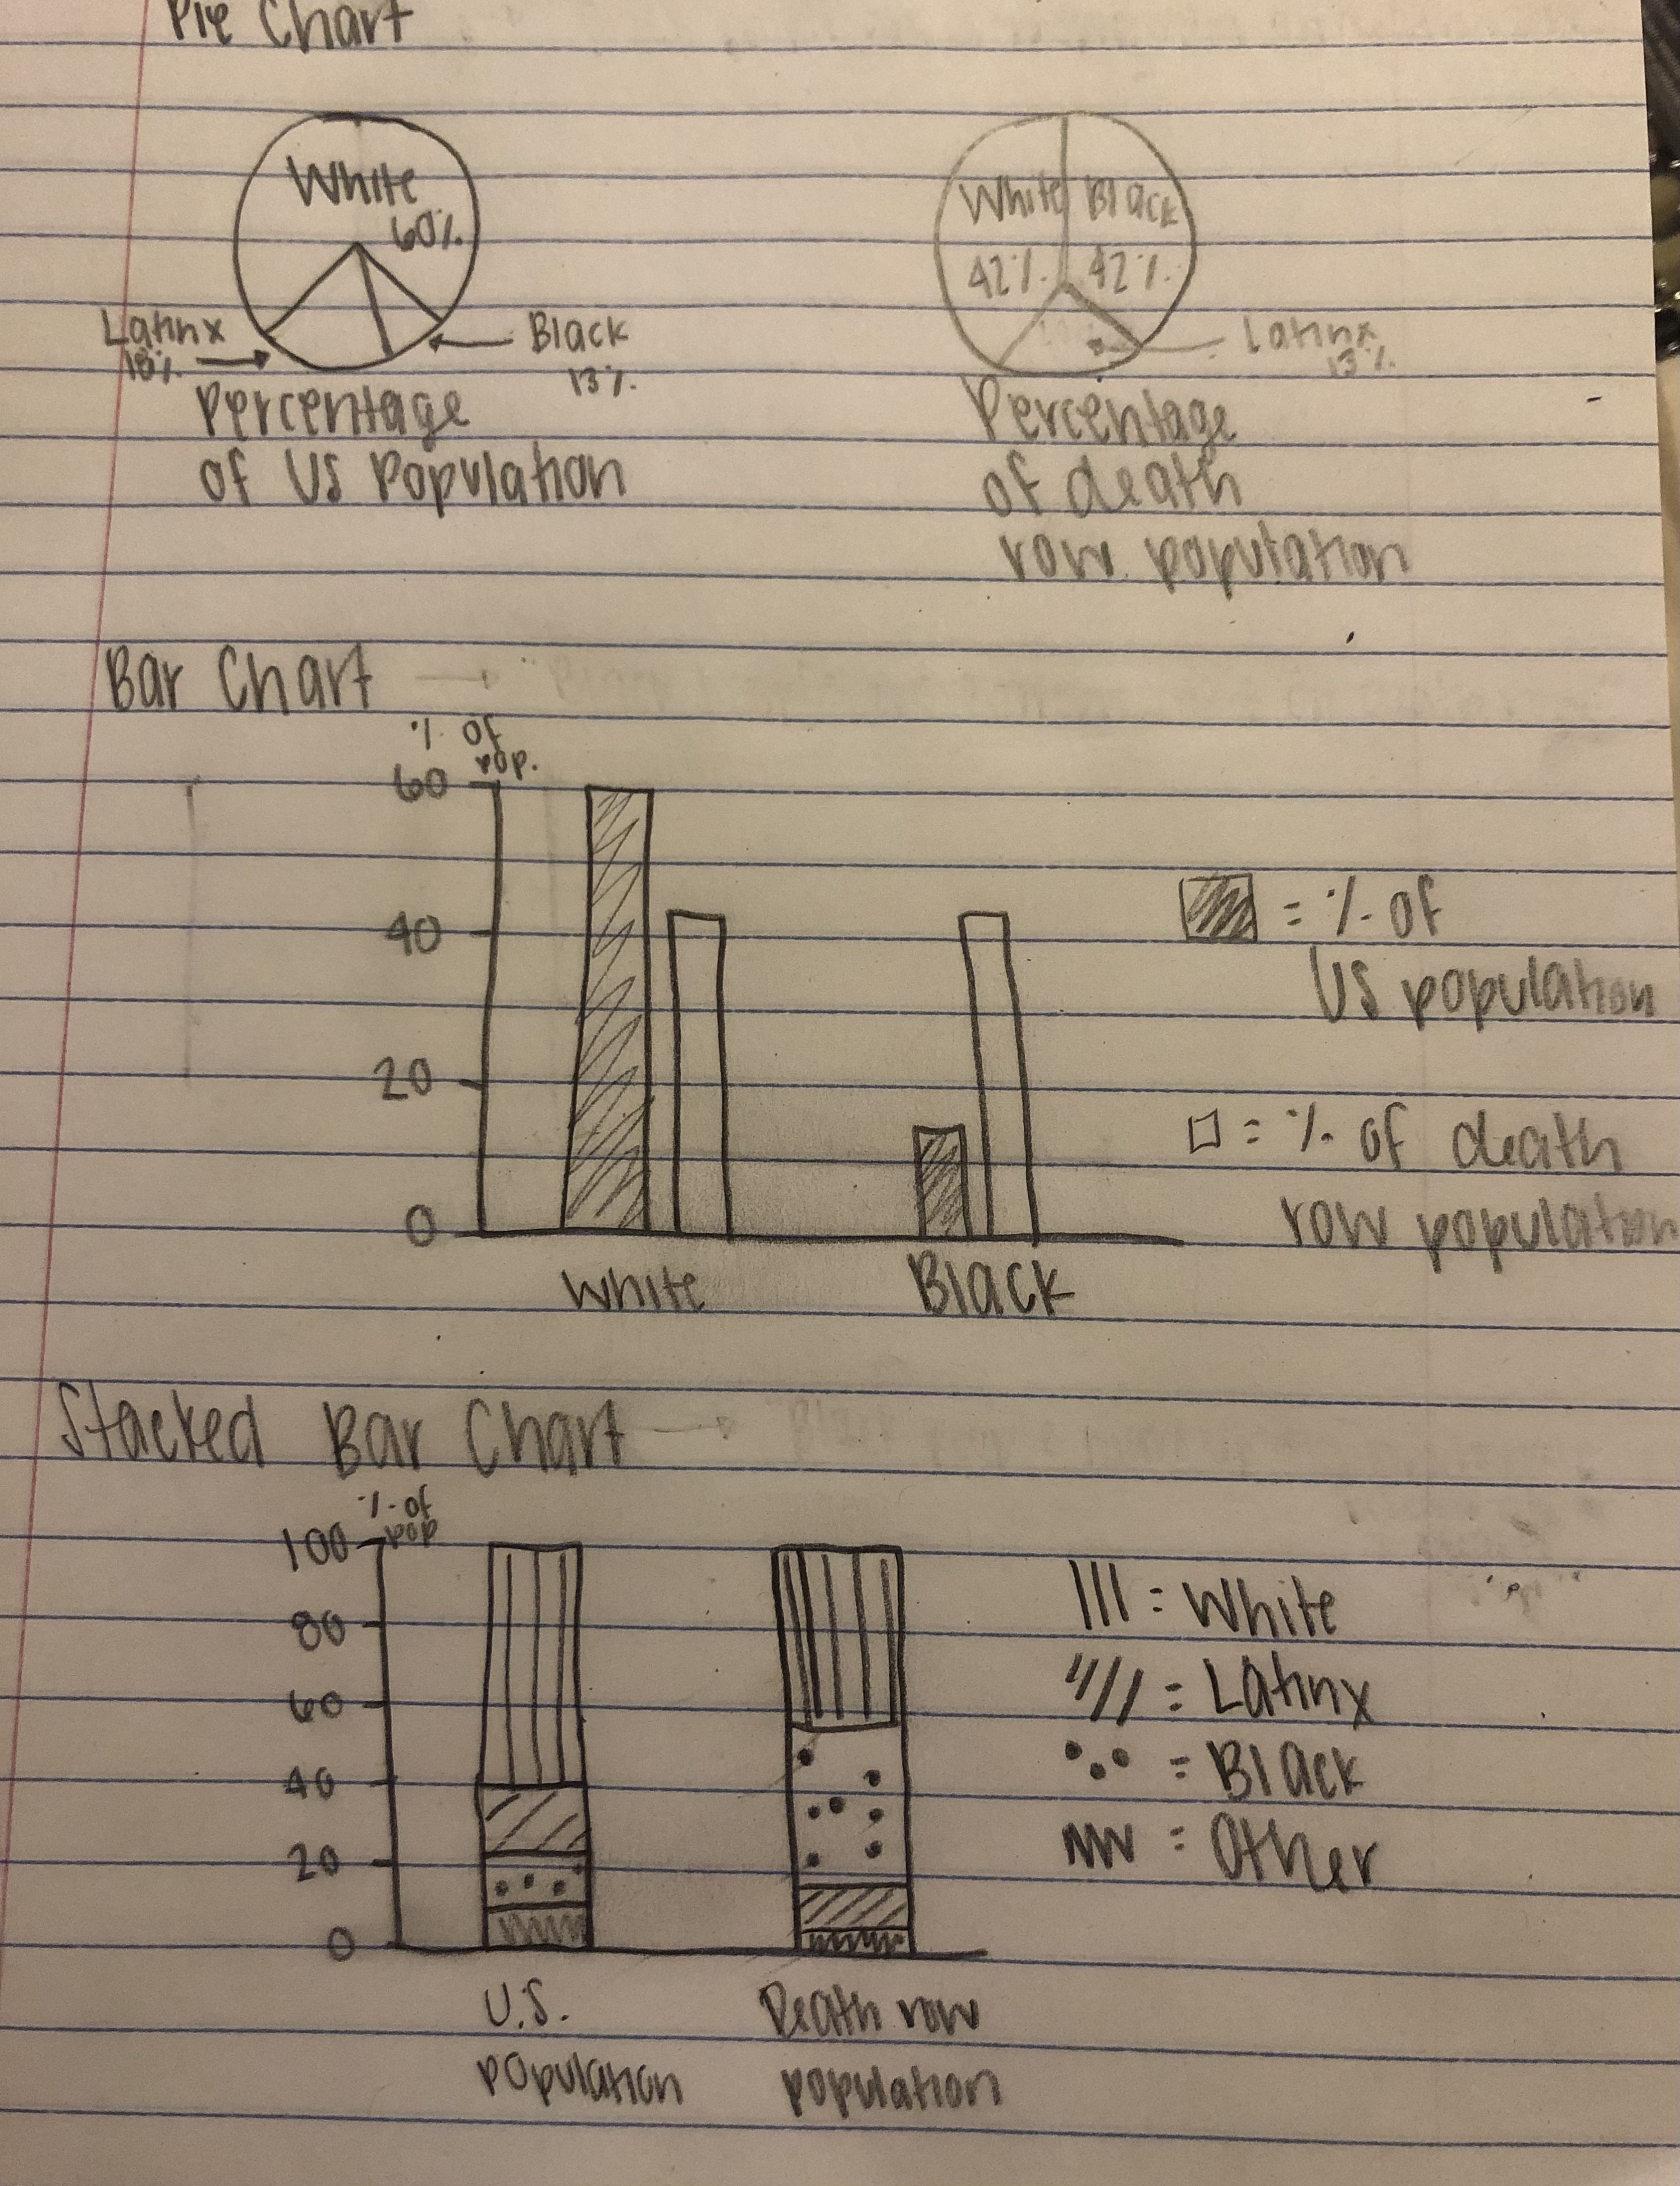 Pie Chart
White
60%
Latinx
18%
Black
13%
Percentage
of US Population
White Black
42% 42%
Latinx
13%
Percentage
of death
row population
Bar Chart →
% of
pop.
60
40
20
0
White Black
= % of
US population
= % of death
row population
Stacked Bar Chart →
% of
pop
100
80
60
40
20
0
U.S.
population
Death row
population
= White
= Latinx
= Black
= Other